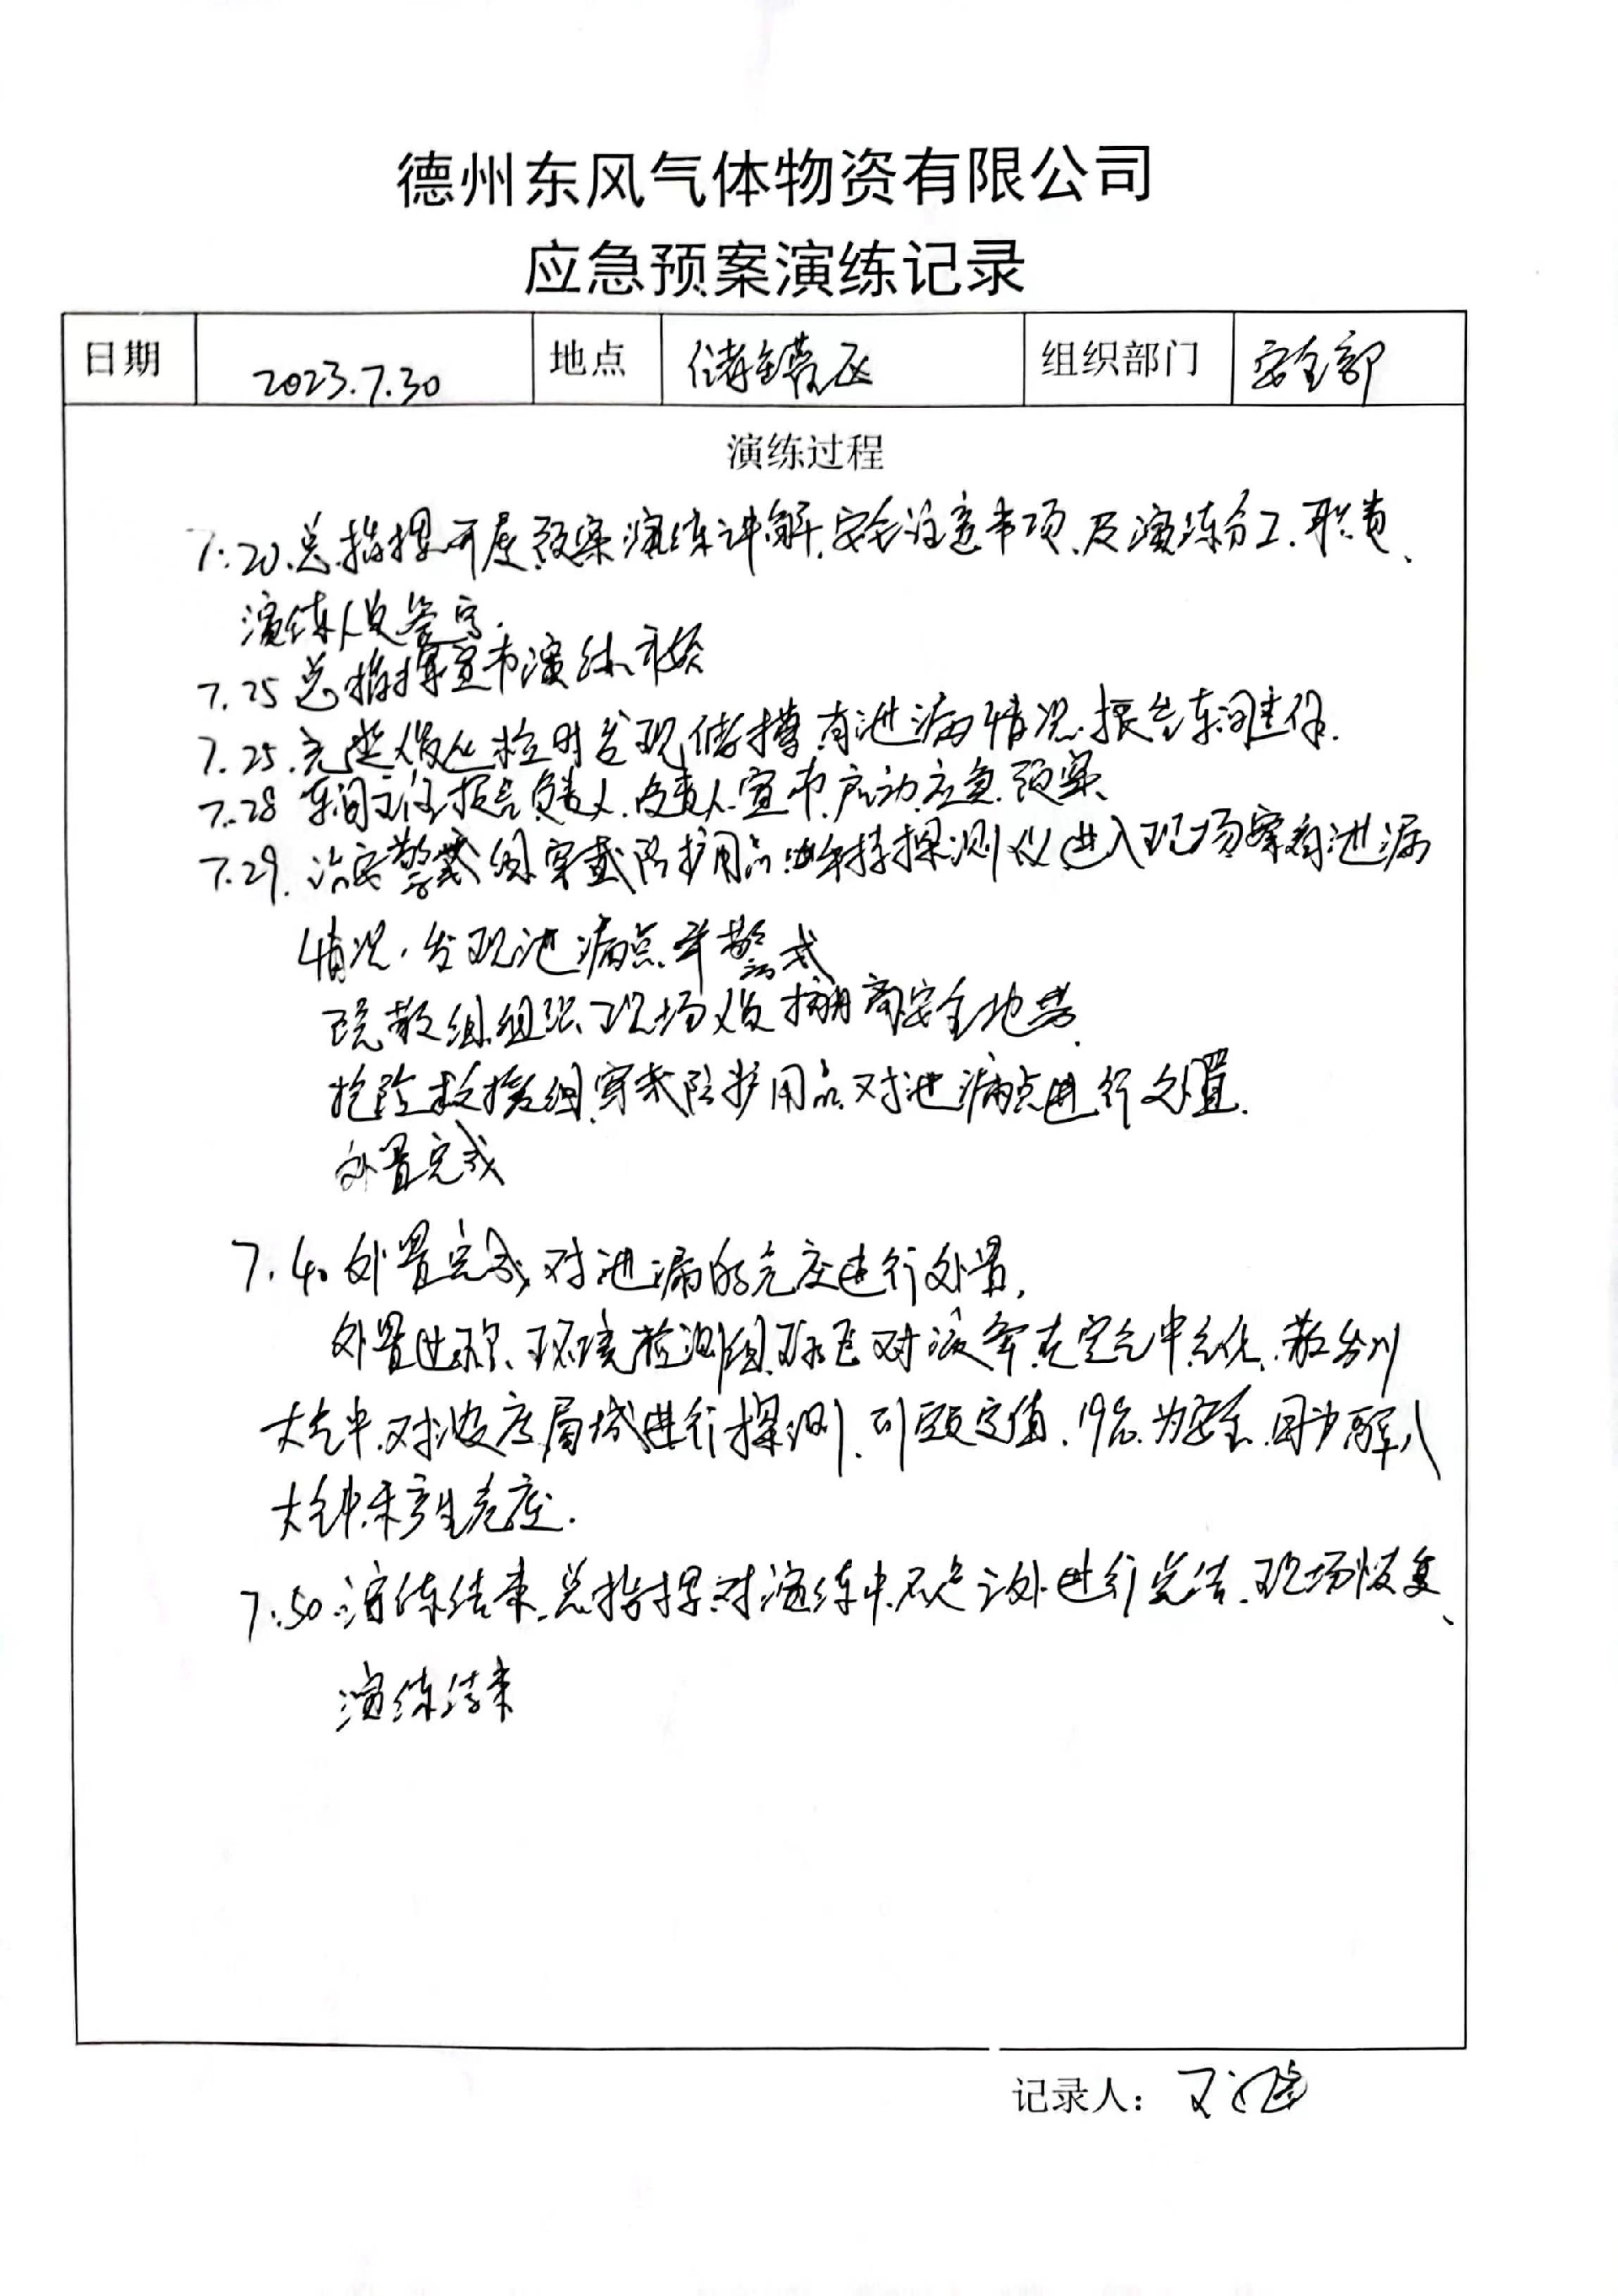 德州东风气体物资有限公司
应急预案演练记录
日期 2023.7.30 地点 储罐区 组织部门 安全部
演练过程
7:20.总指挥开展预案演练讲解.安全注意事项、及演练分工.职责、
演练人员签字.
7.25 总指挥宣布演练开始
7.25.充装人员巡检时发现储槽有泄漏情况.报告车间主任.
7.28 车间主任报告负责人.负责人宣布启动应急预案、
7.29.治安警戒组穿戴防护用品.手持探测仪进入现场察看泄漏
情况.发现泄漏点并警戒
疏散组组织现场人员 离安全地带.
抢险救援组穿戴防护用品对泄漏点进行处置.
处置完成
7.40 处置完成,对泄漏的 进行处置.
处置过程、环境检测组 对液 在空气中 化、散发到
大气中.对浓度 域进行探测、 定值.19% 为安全.
大气中未产生
7:50.演练结束.总指挥对演练中不足之处进行总结、现场恢复、
演练结束
记录人: